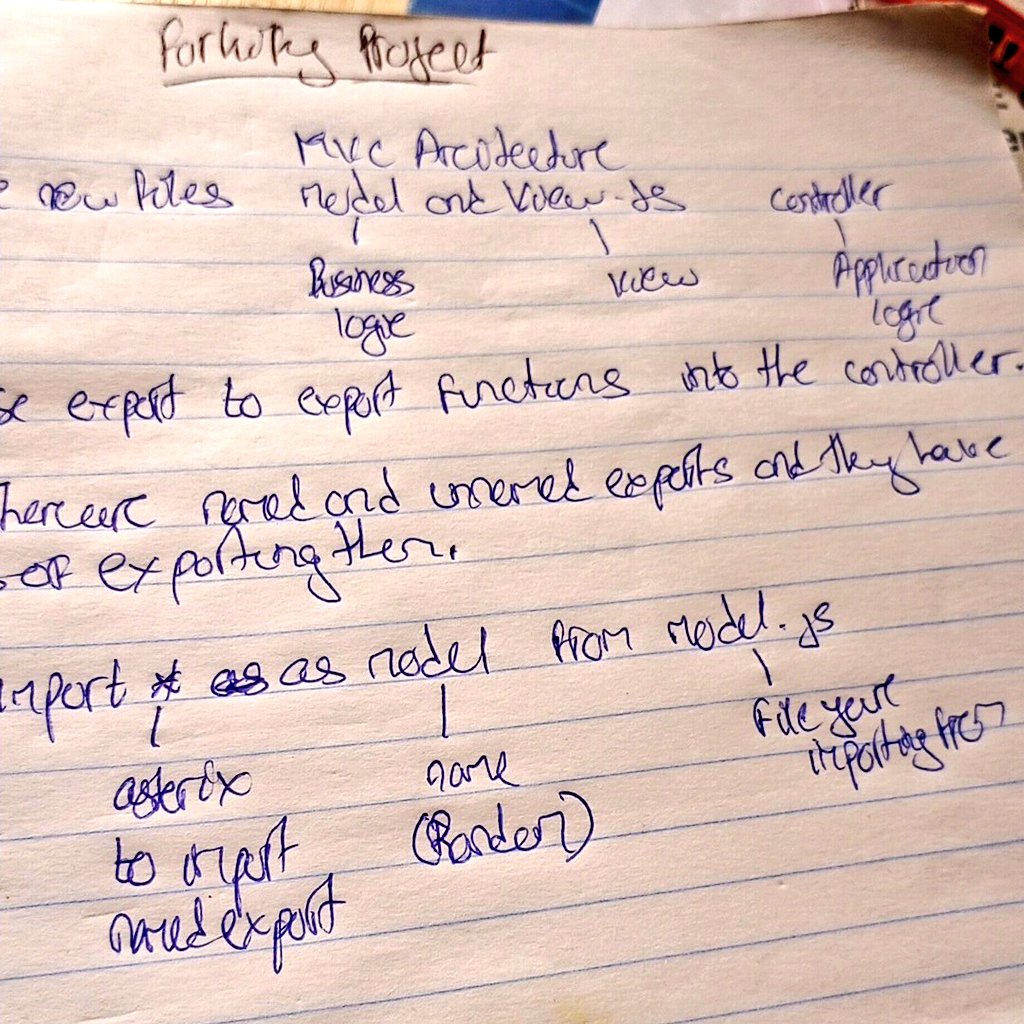 Project
MVC Arcitecture
new files model and View.js controller
Business View Application
logic logic
export to export functions into the controller.
named and unnamed exports and they have
of exporting them.
import * as model from model.js
File your
importing from
asterix name
to import (Random)
named export